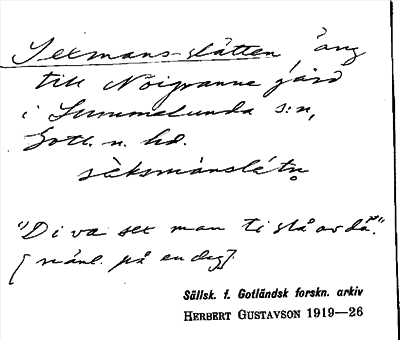 Sexmans-slåtten, äng
till Nöigranne gård
i Lummelunda s:n,
Gotl. n. hd.
sèksmànslétn̥
"Di va sex man ti slå av då".
[näml. på en dag].
Sällsk. f. Gotländsk forskn. arkiv
HERBERT GUSTAVSON 1919—26